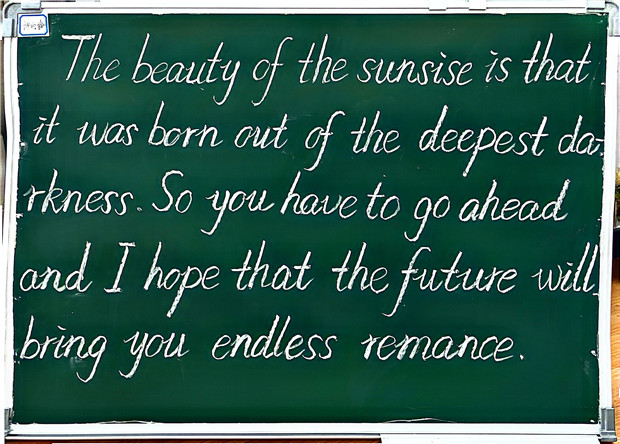 The beauty of the sunsise is that
it was born out of the deepest da-
rkness. So you have to go ahead
and I hope that the future will
bring you endless remance.